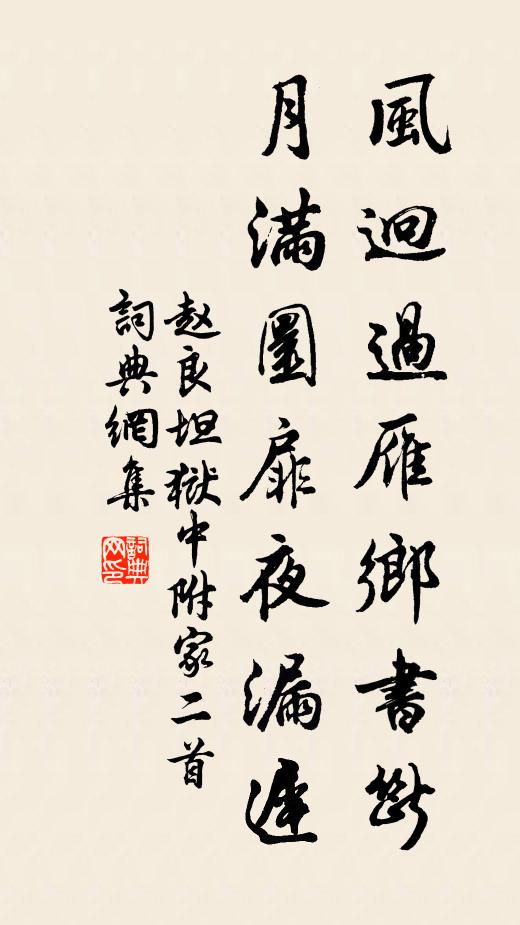 風迴過雁鄉書斷
月滿圜扉夜漏遲
赵良坦獄中附家二首
詞典網集
詞典
网印